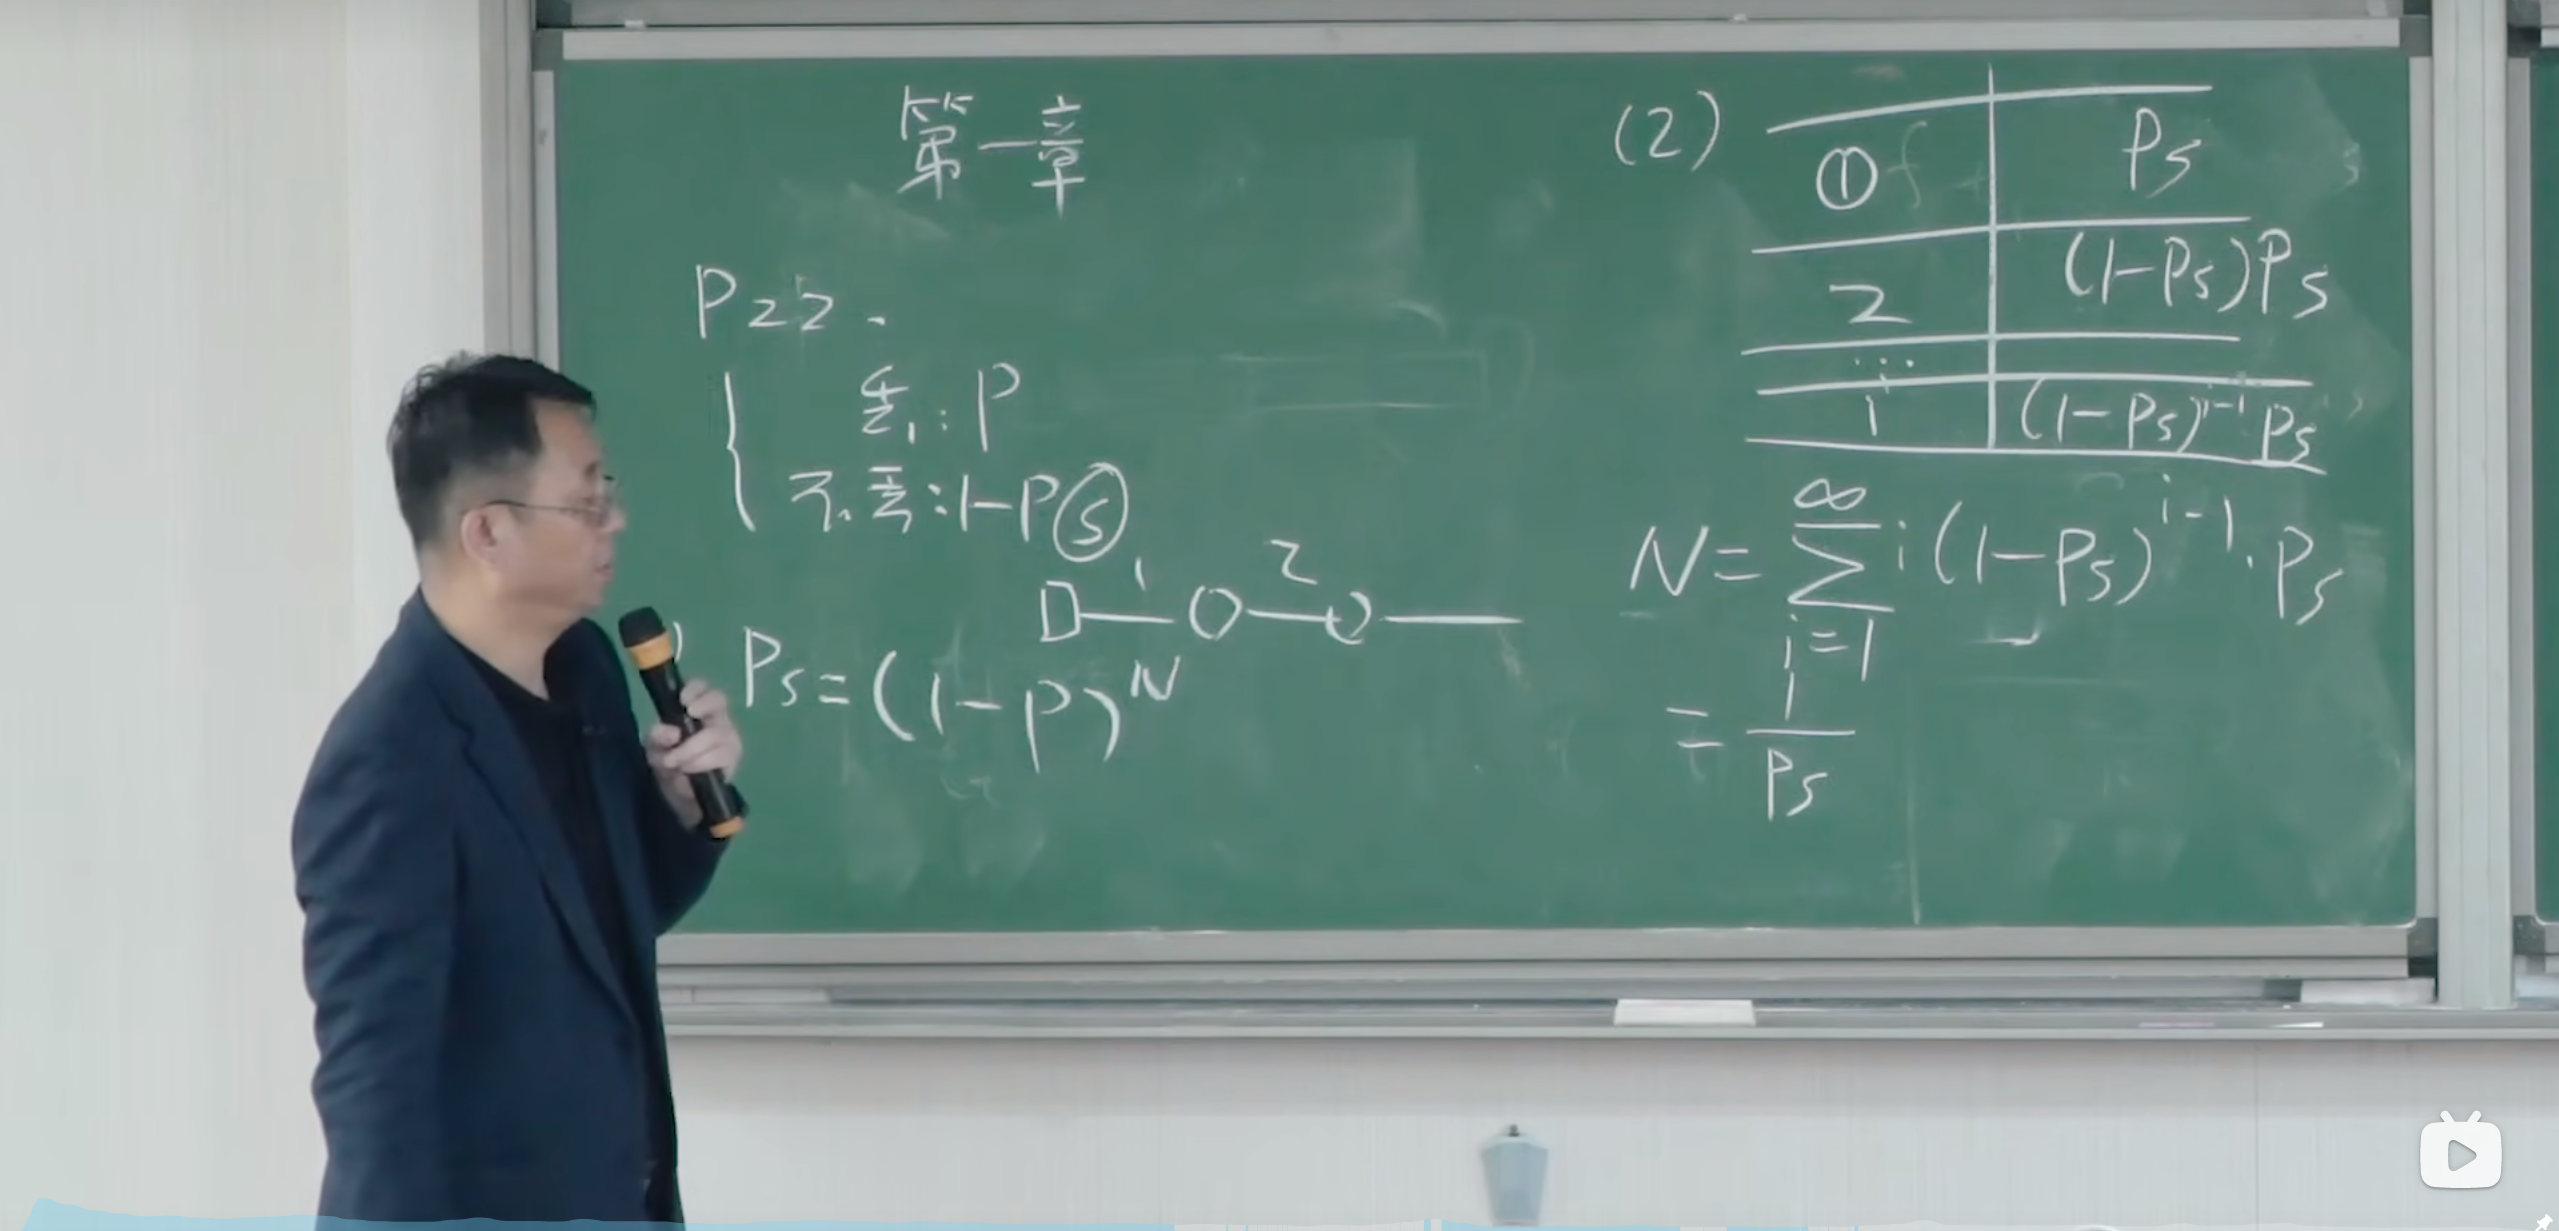 第一章
P22.
丢:P
不丢:1-P
S
1 2
Ps=(1-P)^N
(2)
① Ps
2 (1-Ps)Ps
...
i (1-Ps)^{i-1} Ps
N=∑_{i=1}^{∞} i(1-Ps)^{i-1}·Ps
=1/Ps